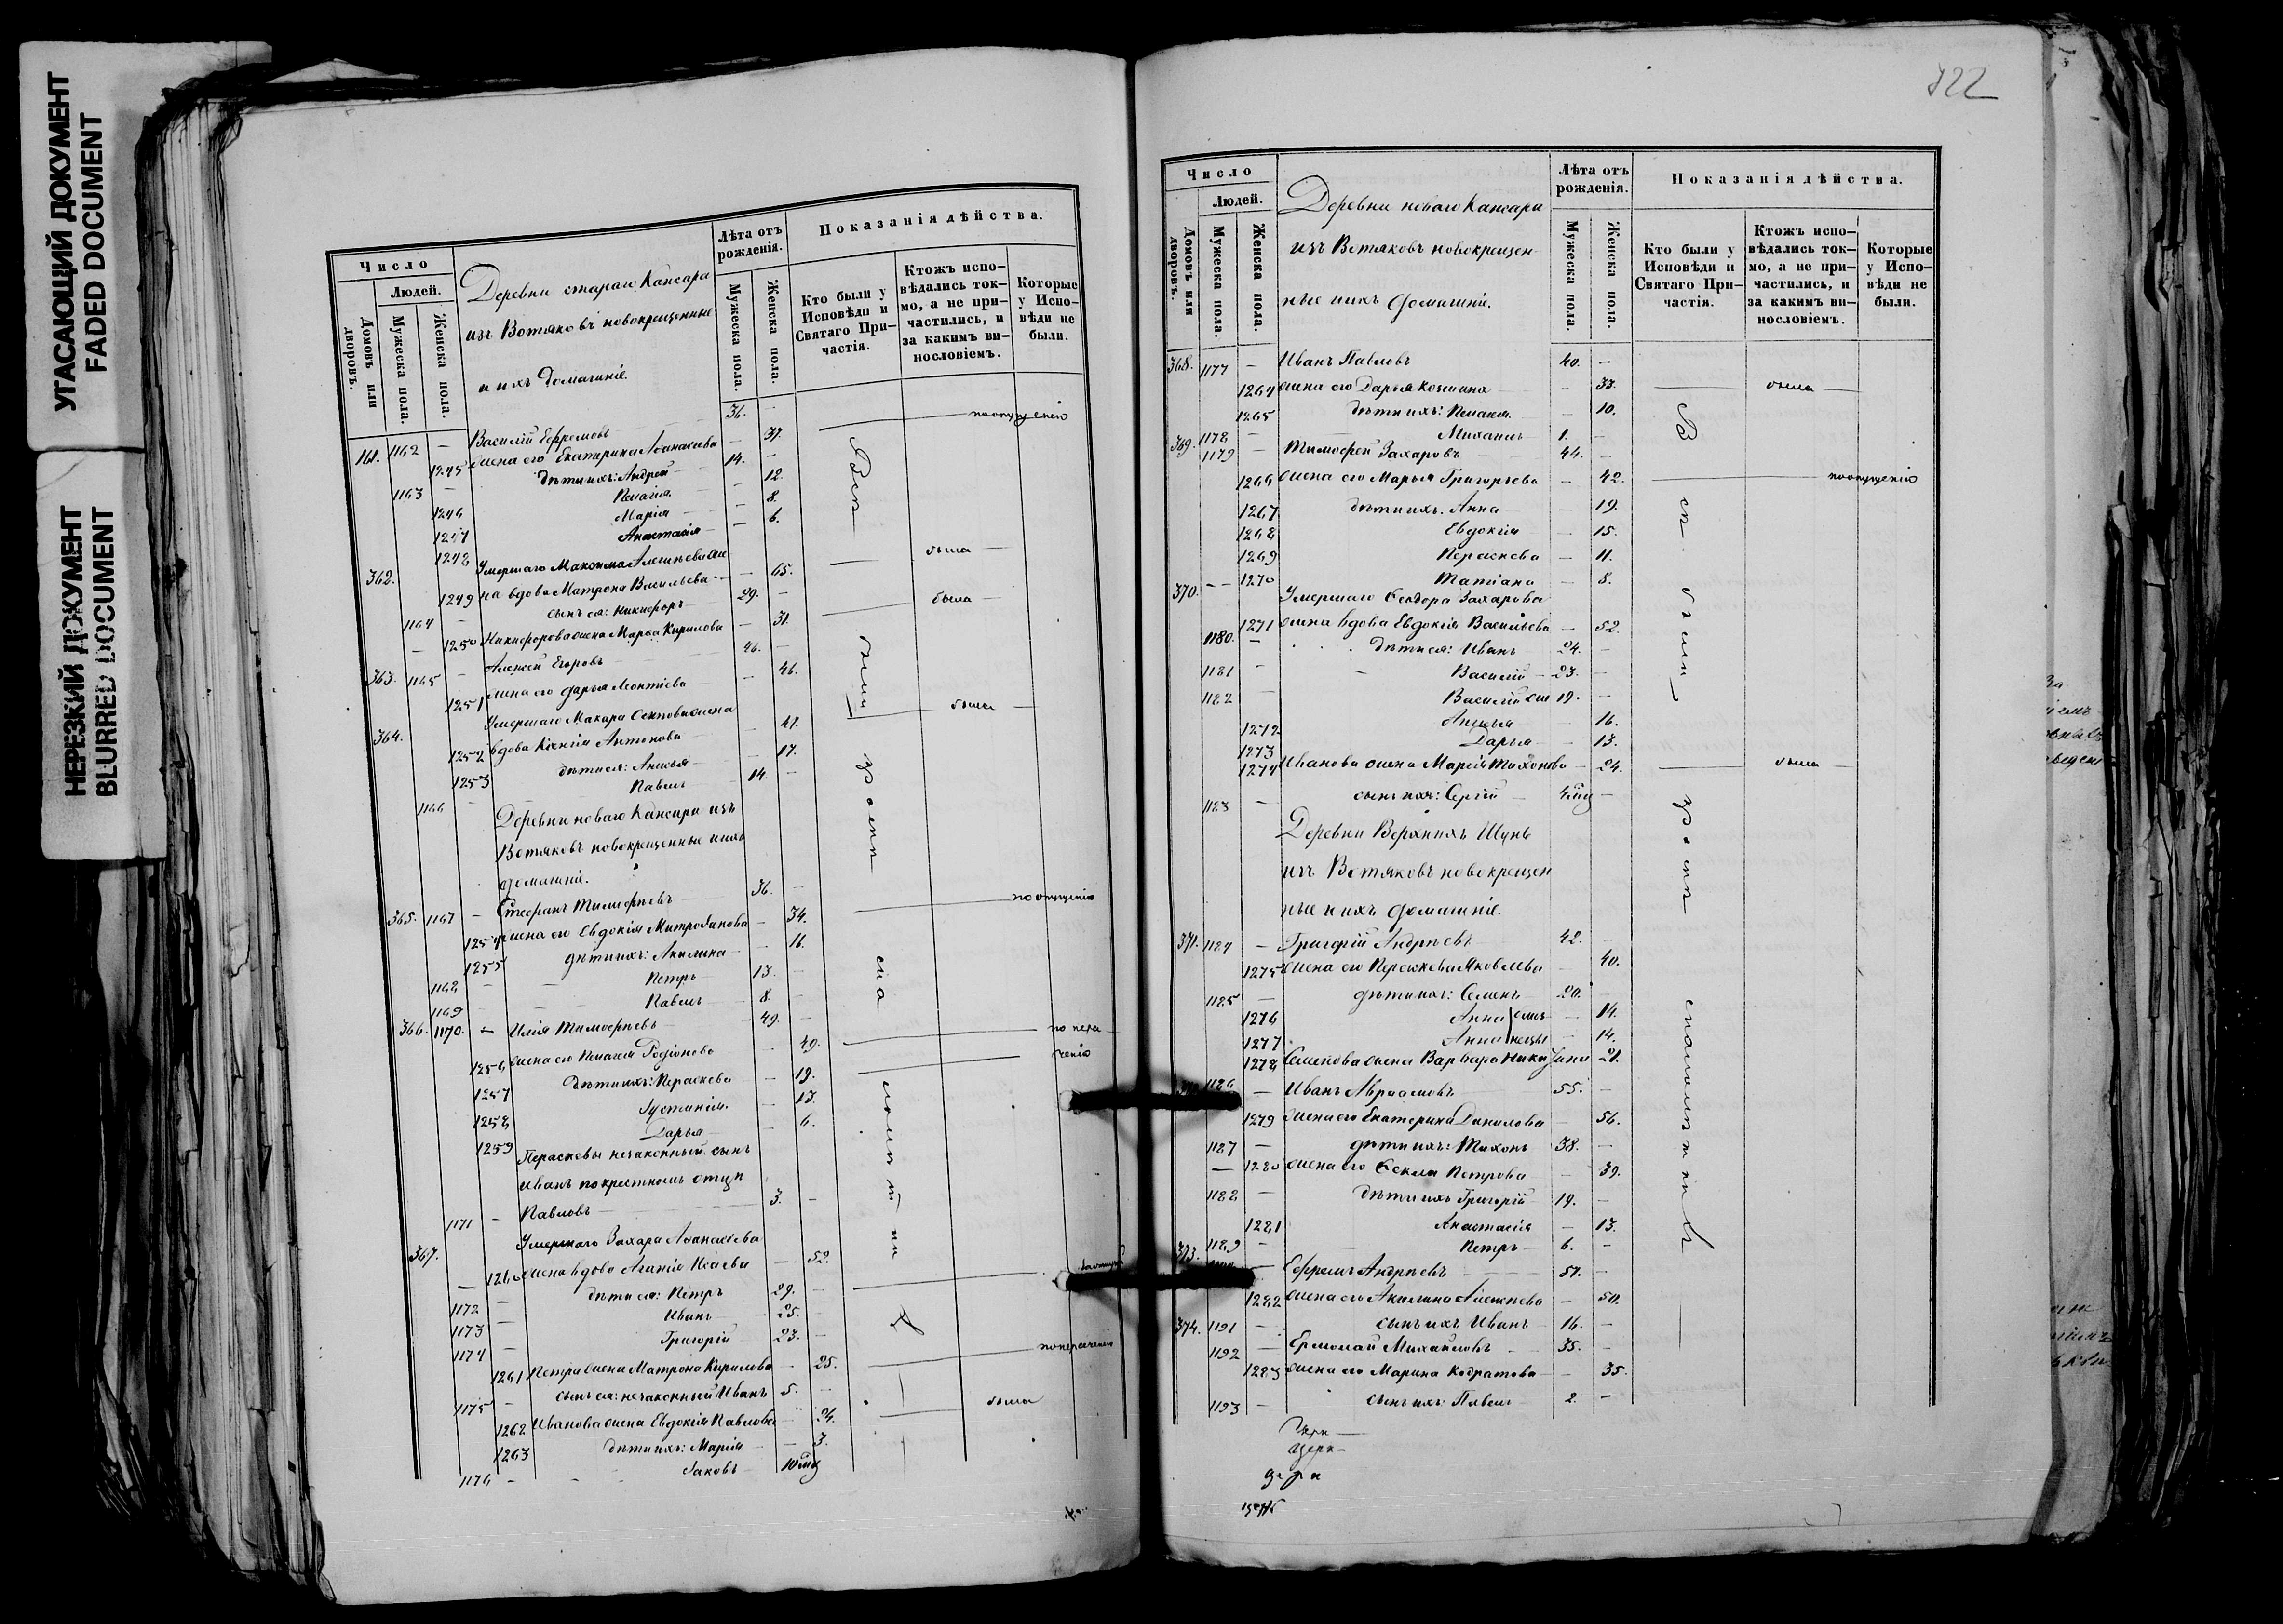 УГАСАЮЩИЙ ДОКУМЕНТ
FADED DOCUMENT
НЕРЕЗКИЙ ДОКУМЕНТ
BLURRED DOCUMENT
Число
Людей.
Домовъ или дворовъ.
Мужеска пола.
Женска пола.
Деревни стараго Кансара
изъ Вотяковъ новокрещенные
и ихъ домашніе.
Лѣта отъ рожденія.
Мужеска пола.
Женска пола.
Показанія дѣйства.
Кто были у Исповѣди и Святаго Причастія.
Ктожъ исповѣдались токмо, а не причастились, и за какимъ винословіемъ.
Которые у Исповѣди не были.
361. 1162 — Василій Ефремовъ 36. — по опущенію
1245 жена его Екатерина Аѳанасьева — 37.
1163 — дѣти ихъ: Андрей 14. —
1246 Пелагія — 12.
1247 Марія — 8.
1248 Анастасія — 6.
362. Умершаго Максима Алексѣева же
1249 на вдова Матрона Васильева — 65. была
1164 — сынъ ея: Никифоръ 29. —
— 1250 Никифорова жена Марья Кирилова — 31. была
363. 1165 — Алексѣй Егоровъ 46. —
1251 жена его Дарья Леонтіева — 46.
364. Умершаго Макара жена
1252 вдова Ксенія Антонова — 41. была
1253 дѣти ея: Анисья — 17.
1166 — Павелъ 14. —
Деревни новаго Кансара изъ
Вотяковъ новокрещенные и ихъ
домашніе.
365. 1167 — Стефанъ Тимофѣевъ 36. —
1254 жена его Евдокія Митрофанова — 34. по опущенію
1255 дѣти ихъ: Акилина — 16.
1168 — Петръ 13. —
1169 — Павелъ 8. —
366. 1170. — Илія Тимофѣевъ 49. —
1256 жена его Пелагея Родіонова — 49. по нера
1257 дѣти ихъ: Параскева — 19. ченію
1258 Іустинія — 13.
1259 Дарья — 6.
Параскевы незаконный сынъ
Иванъ по крестномъ отцѣ
1171 — Павловъ 3. —
367. Умершаго Захара Аѳанасіева
— 1260 жена вдова Агафія Исаева — 52.
1172 — дѣти ея: Петръ 29. —
1173 — Иванъ 25. —
1174 — Григорій 23. —
1261 Петра жена Матрона Кирилова — 25. по нераченію
1175 — сынъ ея: незаконный Иванъ 5. —
1262 Иванова жена Евдокія Павлова — 24. была
1263 дѣти ихъ: Марія — 3.
1176 — Іаковъ 10 мц
Всѣ были у воскр
722
Число
Людей.
Домовъ или дворовъ.
Мужеска пола.
Женска пола.
Деревни новаго Кансара
изъ Вотяковъ новокрещен-
ные и ихъ домашніе.
Лѣта отъ рожденія.
Мужеска пола.
Женска пола.
Показанія дѣйства.
Кто были у Исповѣди и Святаго Причастія.
Ктожъ исповѣдались токмо, а не причастились, и за какимъ винословіемъ.
Которые у Исповѣди не были.
368. 1177 — Иванъ Павловъ 40. —
1264 жена его Дарья Козмина — 33. была
1265 дѣти ихъ: Пелагея — 10.
1178 — Михаилъ 1. —
369. 1179 — Тимофей Захаровъ 44. —
1266 жена его Марья Григорьева — 42. по опущенію
1267 дѣти ихъ: Анна — 19.
1268 Евдокія — 15.
1269 Параскева — 11.
1270 Татіана — 8.
370. Умершаго Ѳеодора Захарова
1271 жена вдова Евдокія Васильева — 52.
1180. — дѣти ея: Иванъ 24. —
1181 — Василій 23. —
1182 — Василій 19. —
1272 Анисья — 16.
1273 Дарья — 13.
1274 Иванова жена Марія Тихонова — 24. была
1183 — сынъ ихъ: Сергій 4 мц —
Деревни Верхнихъ Шунь
изъ Вотяковъ новокрещен
ные и ихъ домашніе.
371. 1184 — Григорій Андрѣевъ 42. —
1275 жена его Параскева Яковлева — 40.
1185 — дѣти ихъ: Семенъ 20. —
1276 Анна — 14.
1277 Анна — 14.
1278 Семенова жена Варвара — 21.
1186 — Иванъ Авраамовъ 55. —
1279 жена его Екатерина Данилова — 56.
1187 — дѣти ихъ: Тихонъ 38. —
— 1280 жена его Ѳекла Петрова — 39.
1188 — дѣти ихъ Григорій 19. —
1281 Анастасія — 13.
1189 — Петръ 6. —
373. Ефремъ Андрѣевъ 51. —
1282 жена его Акилина Алексѣева — 50.
1191 — сынъ ихъ Иванъ 16. —
374. 1192 — Ермолай Михайловъ 35. —
1283 жена его Марина Кодратова — 35.
1193 — сынъ ихъ: Павелъ 2. —